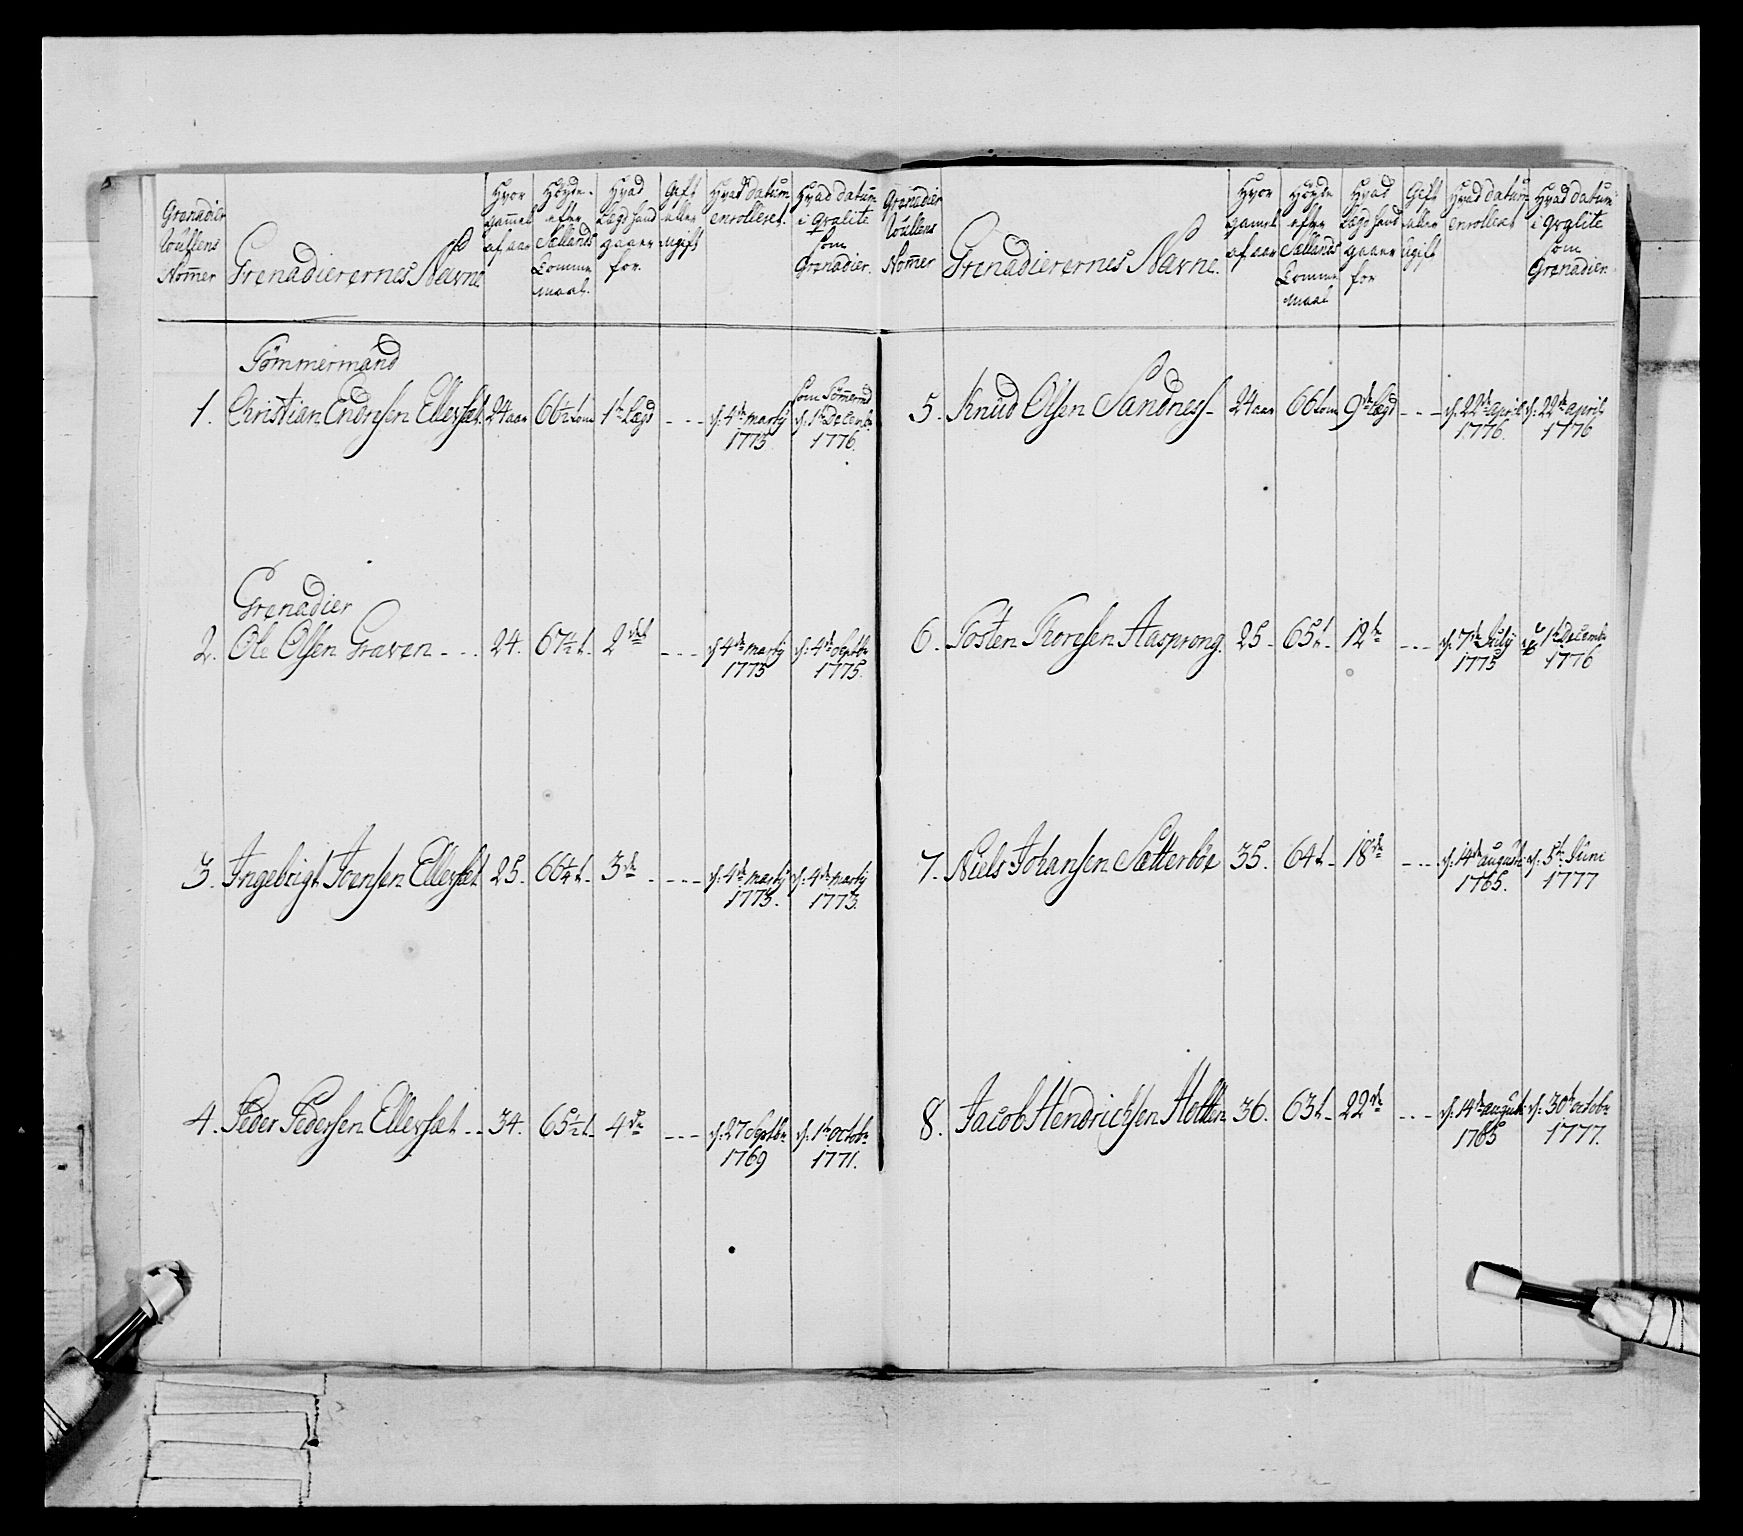 Grenadier
Rullens
Nom̄er
Grenadierernes Navne
Hvor
gam̄el
af aar
Høyde
efter
Siællands
Tomme
maal.
Hvad
Lægd hand
gaaer
for.
Gift
eller
ugift
Hvad datum
enrolleret.
Hvad datum
i qvalite
som
Grenadier.
Tømmermand
1. Christian Endresen Ellefsæt. 24 aar 66½ tom 1te Lægd - - - d. 4de marty 1773 som Tømermd d. 1te Decemb. 1776.
Grenadier
2. Ole Olsen Graven - - - 24. 67½ t. 2det - - - d. 4de marty 1773 d. 4de Septbr 1775.
3. Ingebrigt Joensen Ellefsæt 25. 66¼ t. 3de - - - d. 4de marty 1773. d. 4de marty 1773.
4. Peder Pedersen Ellefsæt - - 34. 65½ t. 4de - - - d. 27 Septbr 1769 d. 1te octobr 1771.
Grenadier
Rullens
Nom̄er
Grenadierernes Navne.
Hvor
gamel
af aar
Høyde
efter
Siællands
Tomme
maal
Hvad
Lægd hand
gaaer
for
Gift
eller
ugift
Hvad datum
enrolleret
Hvad datum
i qvalite
som
Grenadier.
5. Knud Olsen Sandness - 24 aar 66 tom 9de Lægd - - - d. 22de april 1776. d. 22de april 1776
6. Tosten Thoresen Aasprong. 25 - 65 t. 12te - - - d. 7de July 1775 1te Decemb. 1776
7. Niels Johansen Sætterbøe 35. 64 t. 18de - - - d. 14de augusti 1765. d. 5te Juni 1777
8. Jacob Hendrichsen Hetlen 36. 63 t. 22de - - - d. 14de august 1765 d. 30te octobr 1777.